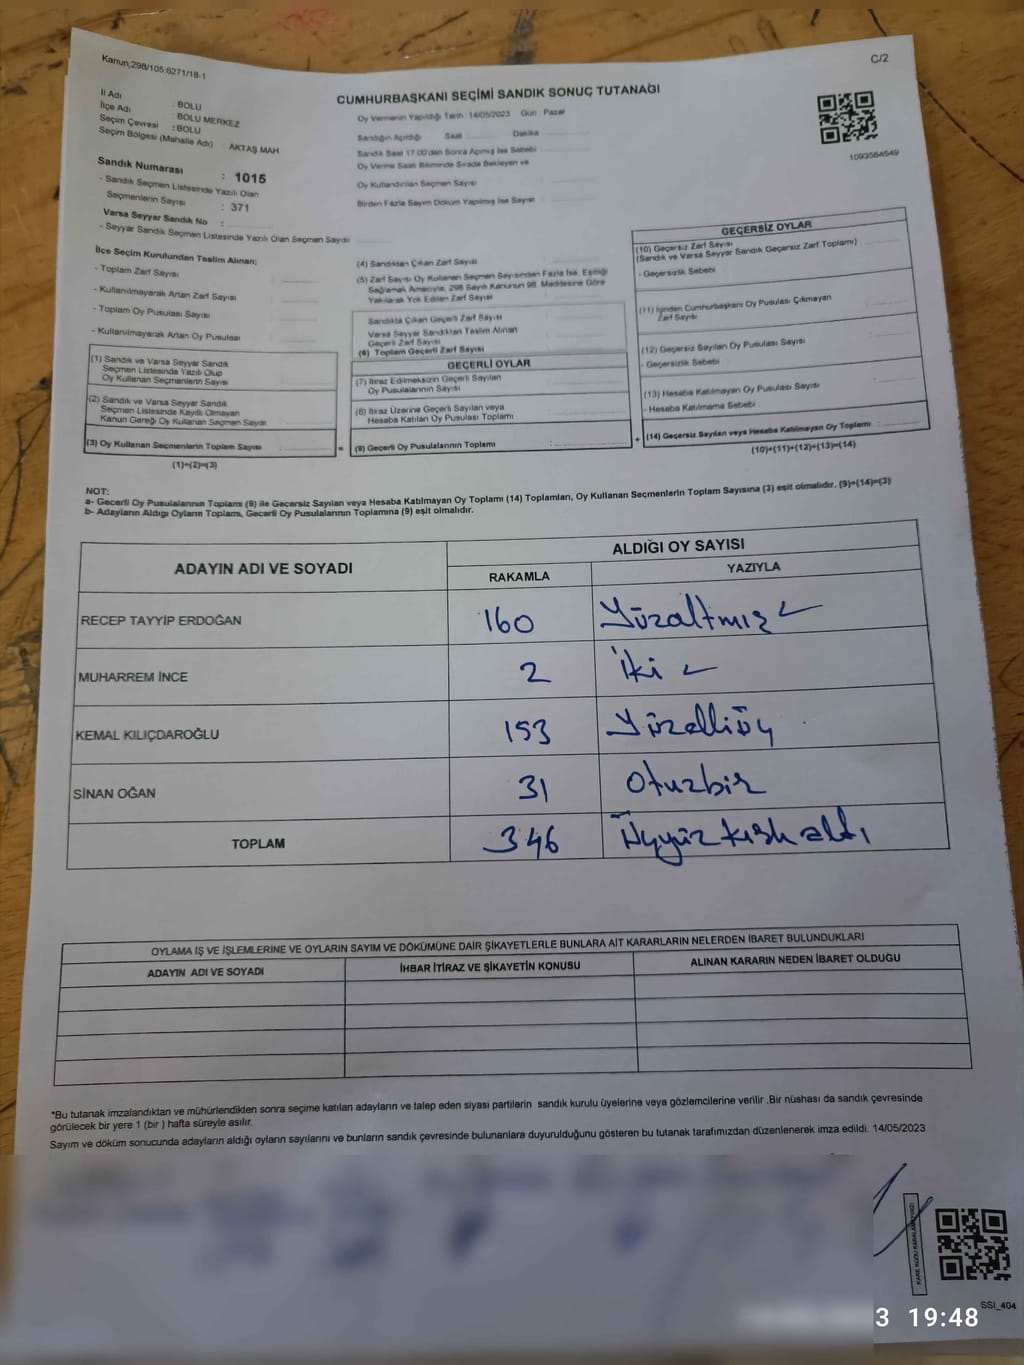 Kanun;298/105;6271/18-1
C/2
CUMHURBAŞKANI SEÇİMİ SANDIK SONUÇ TUTANAĞI
İl Adı : BOLU
İlçe Adı : BOLU MERKEZ
Seçim Çevresi : BOLU
Seçim Bölgesi (Mahalle Adı) : AKTAŞ MAH
Oy Vermenin Yapıldığı Tarih : 14/05/2023 Gün : Pazar
Sandığın Açıldığı Saat Dakika
Sandık Saat 17:00'den Sonra Açılmış İse Sebebi
Oy Verme Saati Bitiminde Sırada Bekleyen ve
Oy Kullandırılan Seçmen Sayısı
Birden Fazla Sayım Döküm Yapılmış İse Sayısı
1093564549
Sandık Numarası : 1015
- Sandık Seçmen Listesinde Yazılı Olan
Seçmenlerin Sayısı : 371
Varsa Seyyar Sandık No :
- Seyyar Sandık Seçmen Listesinde Yazılı Olan Seçmen Sayısı
İlçe Seçim Kurulundan Teslim Alınan;
- Toplam Zarf Sayısı
- Kullanılmayarak Artan Zarf Sayısı
- Toplam Oy Pusulası Sayısı
- Kullanılmayarak Artan Oy Pusulası
(1) Sandık ve Varsa Seyyar Sandık
Seçmen Listesinde Yazılı Olup
Oy Kullanan Seçmenlerin Sayısı
(2) Sandık ve Varsa Seyyar Sandık
Seçmen Listesinde Kayıtlı Olmayan
Kanun Gereği Oy Kullanan Seçmen Sayısı
(3) Oy Kullanan Seçmenlerin Toplam Sayısı :
(1)+(2)=(3)
(4) Sandıktan Çıkan Zarf Sayısı
(5) Zarf Sayısı Oy Kullanan Seçmen Sayısından Fazla İse, Eşitliği
Sağlamak Amacıyla, 298 Sayılı Kanunun 98. Maddesine Göre
Yakılarak Yok Edilen Zarf Sayısı
Sandıkta Çıkan Geçerli Zarf Sayısı
Varsa Seyyar Sandıktan Teslim Alınan
Geçerli Zarf Sayısı
(6) Toplam Geçerli Zarf Sayısı
GEÇERLİ OYLAR
(7) İtiraz Edilmeksizin Geçerli Sayılan
Oy Pusulalarının Sayısı
(8) İtiraz Üzerine Geçerli Sayılan veya
Hesaba Katılan Oy Pusulası Toplamı
= (9) Geçerli Oy Pusulalarının Toplamı :
GEÇERSİZ OYLAR
(10) Geçersiz Zarf Sayısı
(Sandık ve Varsa Seyyar Sandık Geçersiz Zarf Toplamı)
- Geçersizlik Sebebi
(11) İçinden Cumhurbaşkanı Oy Pusulası Çıkmayan
Zarf Sayısı
(12) Geçersiz Sayılan Oy Pusulası Sayısı
- Geçersizlik Sebebi
(13) Hesaba Katılmayan Oy Pusulası Sayısı
- Hesaba Katılmama Sebebi
+ (14) Geçersiz Sayılan veya Hesaba Katılmayan Oy Toplamı :
(10)+(11)+(12)+(13)=(14)
NOT:
a- Geçerli Oy Pusulalarının Toplamı (9) ile Geçersiz Sayılan veya Hesaba Katılmayan Oy Toplamı (14) Toplamları, Oy Kullanan Seçmenlerin Toplam Sayısına (3) eşit olmalıdır. (9)+(14)=(3)
b- Adayların Aldığı Oyların Toplamı, Geçerli Oy Pusulalarının Toplamına (9) eşit olmalıdır.
ADAYIN ADI VE SOYADI
ALDIĞI OY SAYISI
RAKAMLA YAZIYLA
RECEP TAYYİP ERDOĞAN 160 Yüzaltmış
MUHARREM İNCE 2 İki
KEMAL KILIÇDAROĞLU 153 Yüzelliüç
SİNAN OĞAN 31 Otuzbir
TOPLAM 346 Üçyüz kırk altı
OYLAMA İŞ VE İŞLEMLERİNE VE OYLARIN SAYIM VE DÖKÜMÜNE DAİR ŞİKAYETLERLE BUNLARA AİT KARARLARIN NELERDEN İBARET BULUNDUKLARI
ADAYIN ADI VE SOYADI İHBAR İTİRAZ VE ŞİKAYETİN KONUSU ALINAN KARARIN NEDEN İBARET OLDUĞU
*Bu tutanak imzalandıktan ve mühürlendikten sonra seçime katılan adayların ve talep eden siyasi partilerin sandık kurulu üyelerine veya gözlemcilerine verilir .Bir nüshası da sandık çevresinde
görülecek bir yere 1 (bir ) hafta süreyle asılır.
Sayım ve döküm sonucunda adayların aldığı oyların sayılarını ve bunların sandık çevresinde bulunanlara duyurulduğunu gösteren bu tutanak tarafımızdan düzenlenerek imza edildi. 14/05/2023
SSI_404
3 19:48